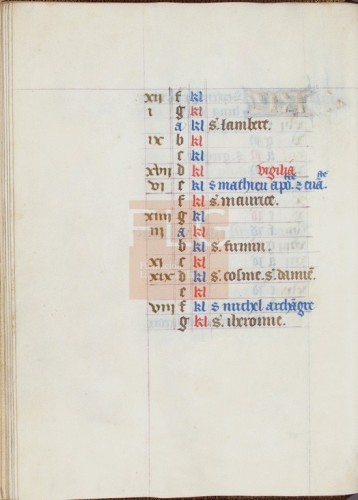 xii f kl
i g kl
a kl s. lambert.
ix b kl
c kl
xvii d kl vigilia
vi e kl s mathieu apo. z euā.
f kl s. maurice.
xiiii g kl
iii a kl
b kl s. firmin.
xi c kl
xix d kl s. cosme. s. damiē.
e kl
viii f kl s michel archāgre
g kl s. iheroime.